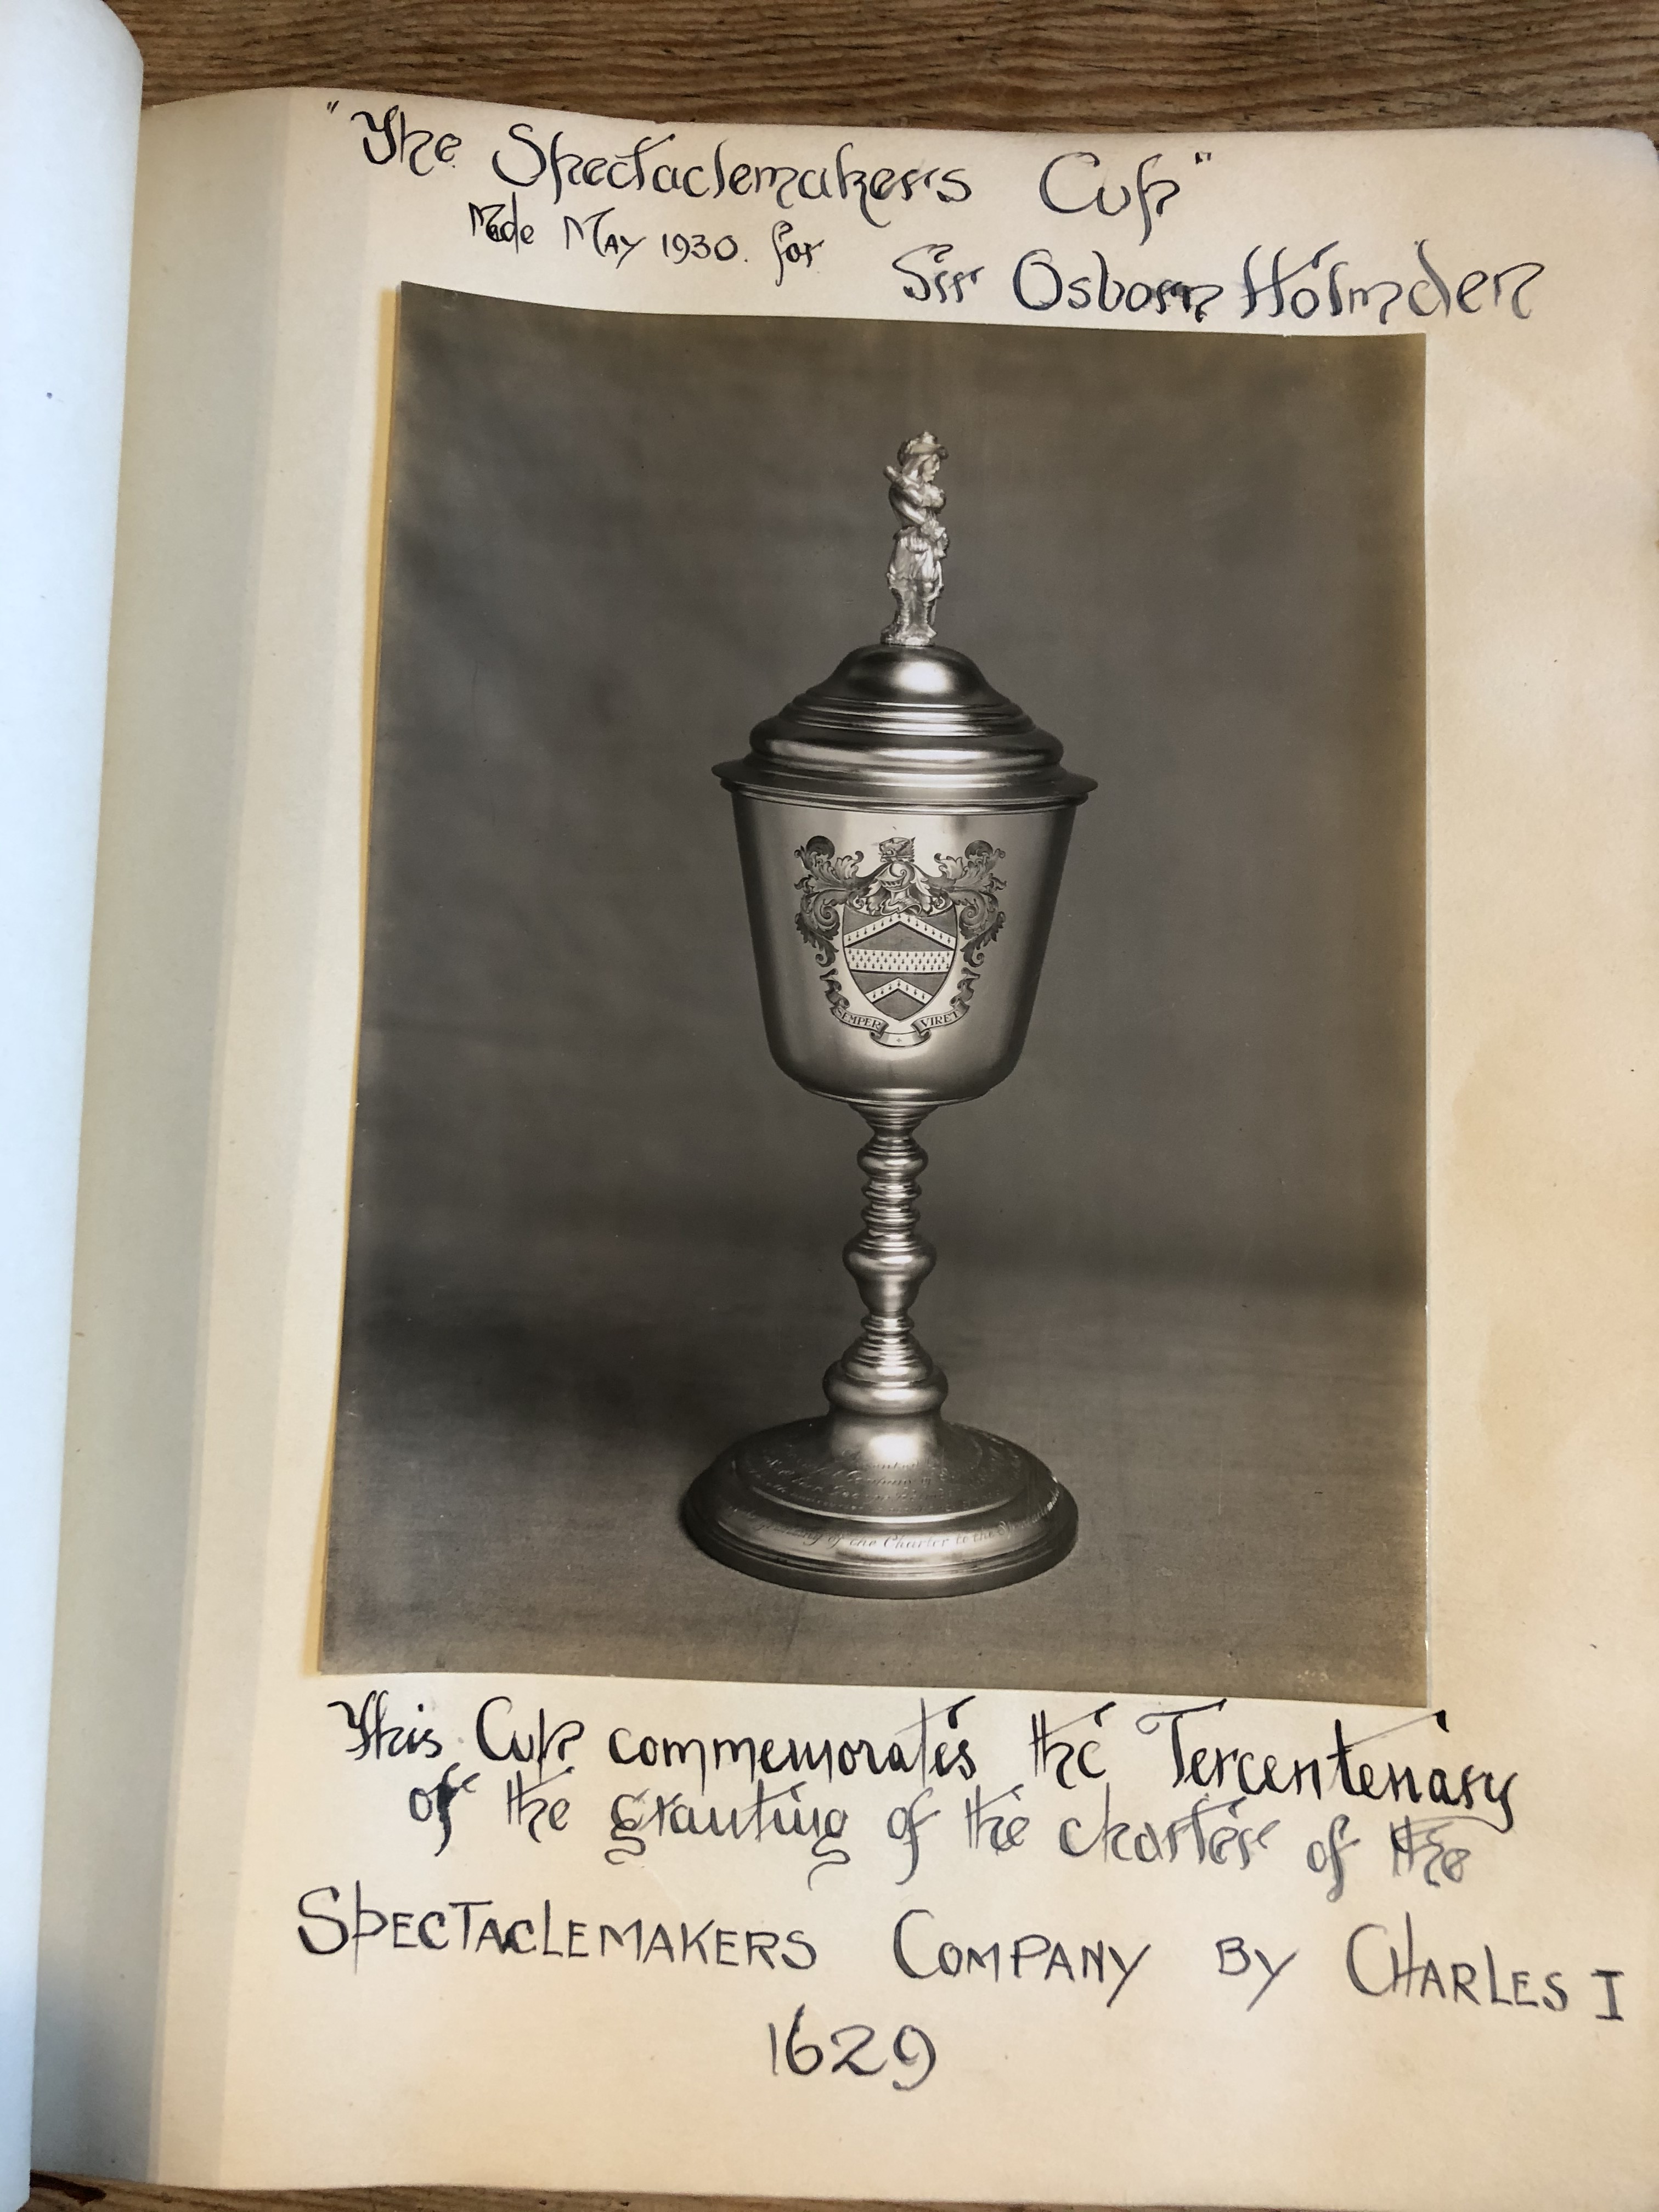 "The Spectaclemakers Cup"
Made May 1930. for Sir Osborn Holmden
SEMPER VIRET
of the Charter to the
This Cup commemorates the Tercentenary
of the granting of the charter of the
SPECTACLEMAKERS COMPANY BY CHARLES I
1629